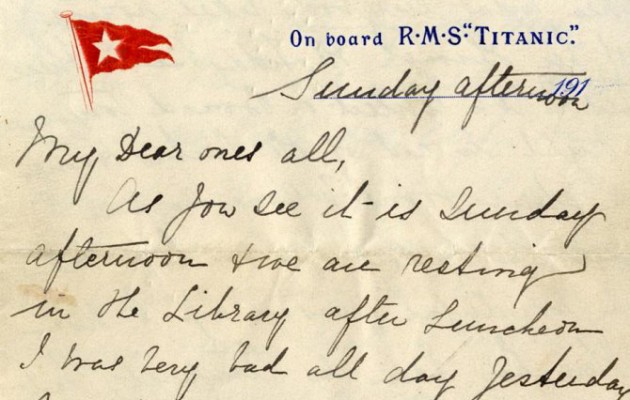 On board R·M·S·"TITANIC".
191
Sunday afternoon
My Dear ones all,
As you see it is Sunday
afternoon & we are resting
in the Library after Luncheon
I was very bad all day Yesterday